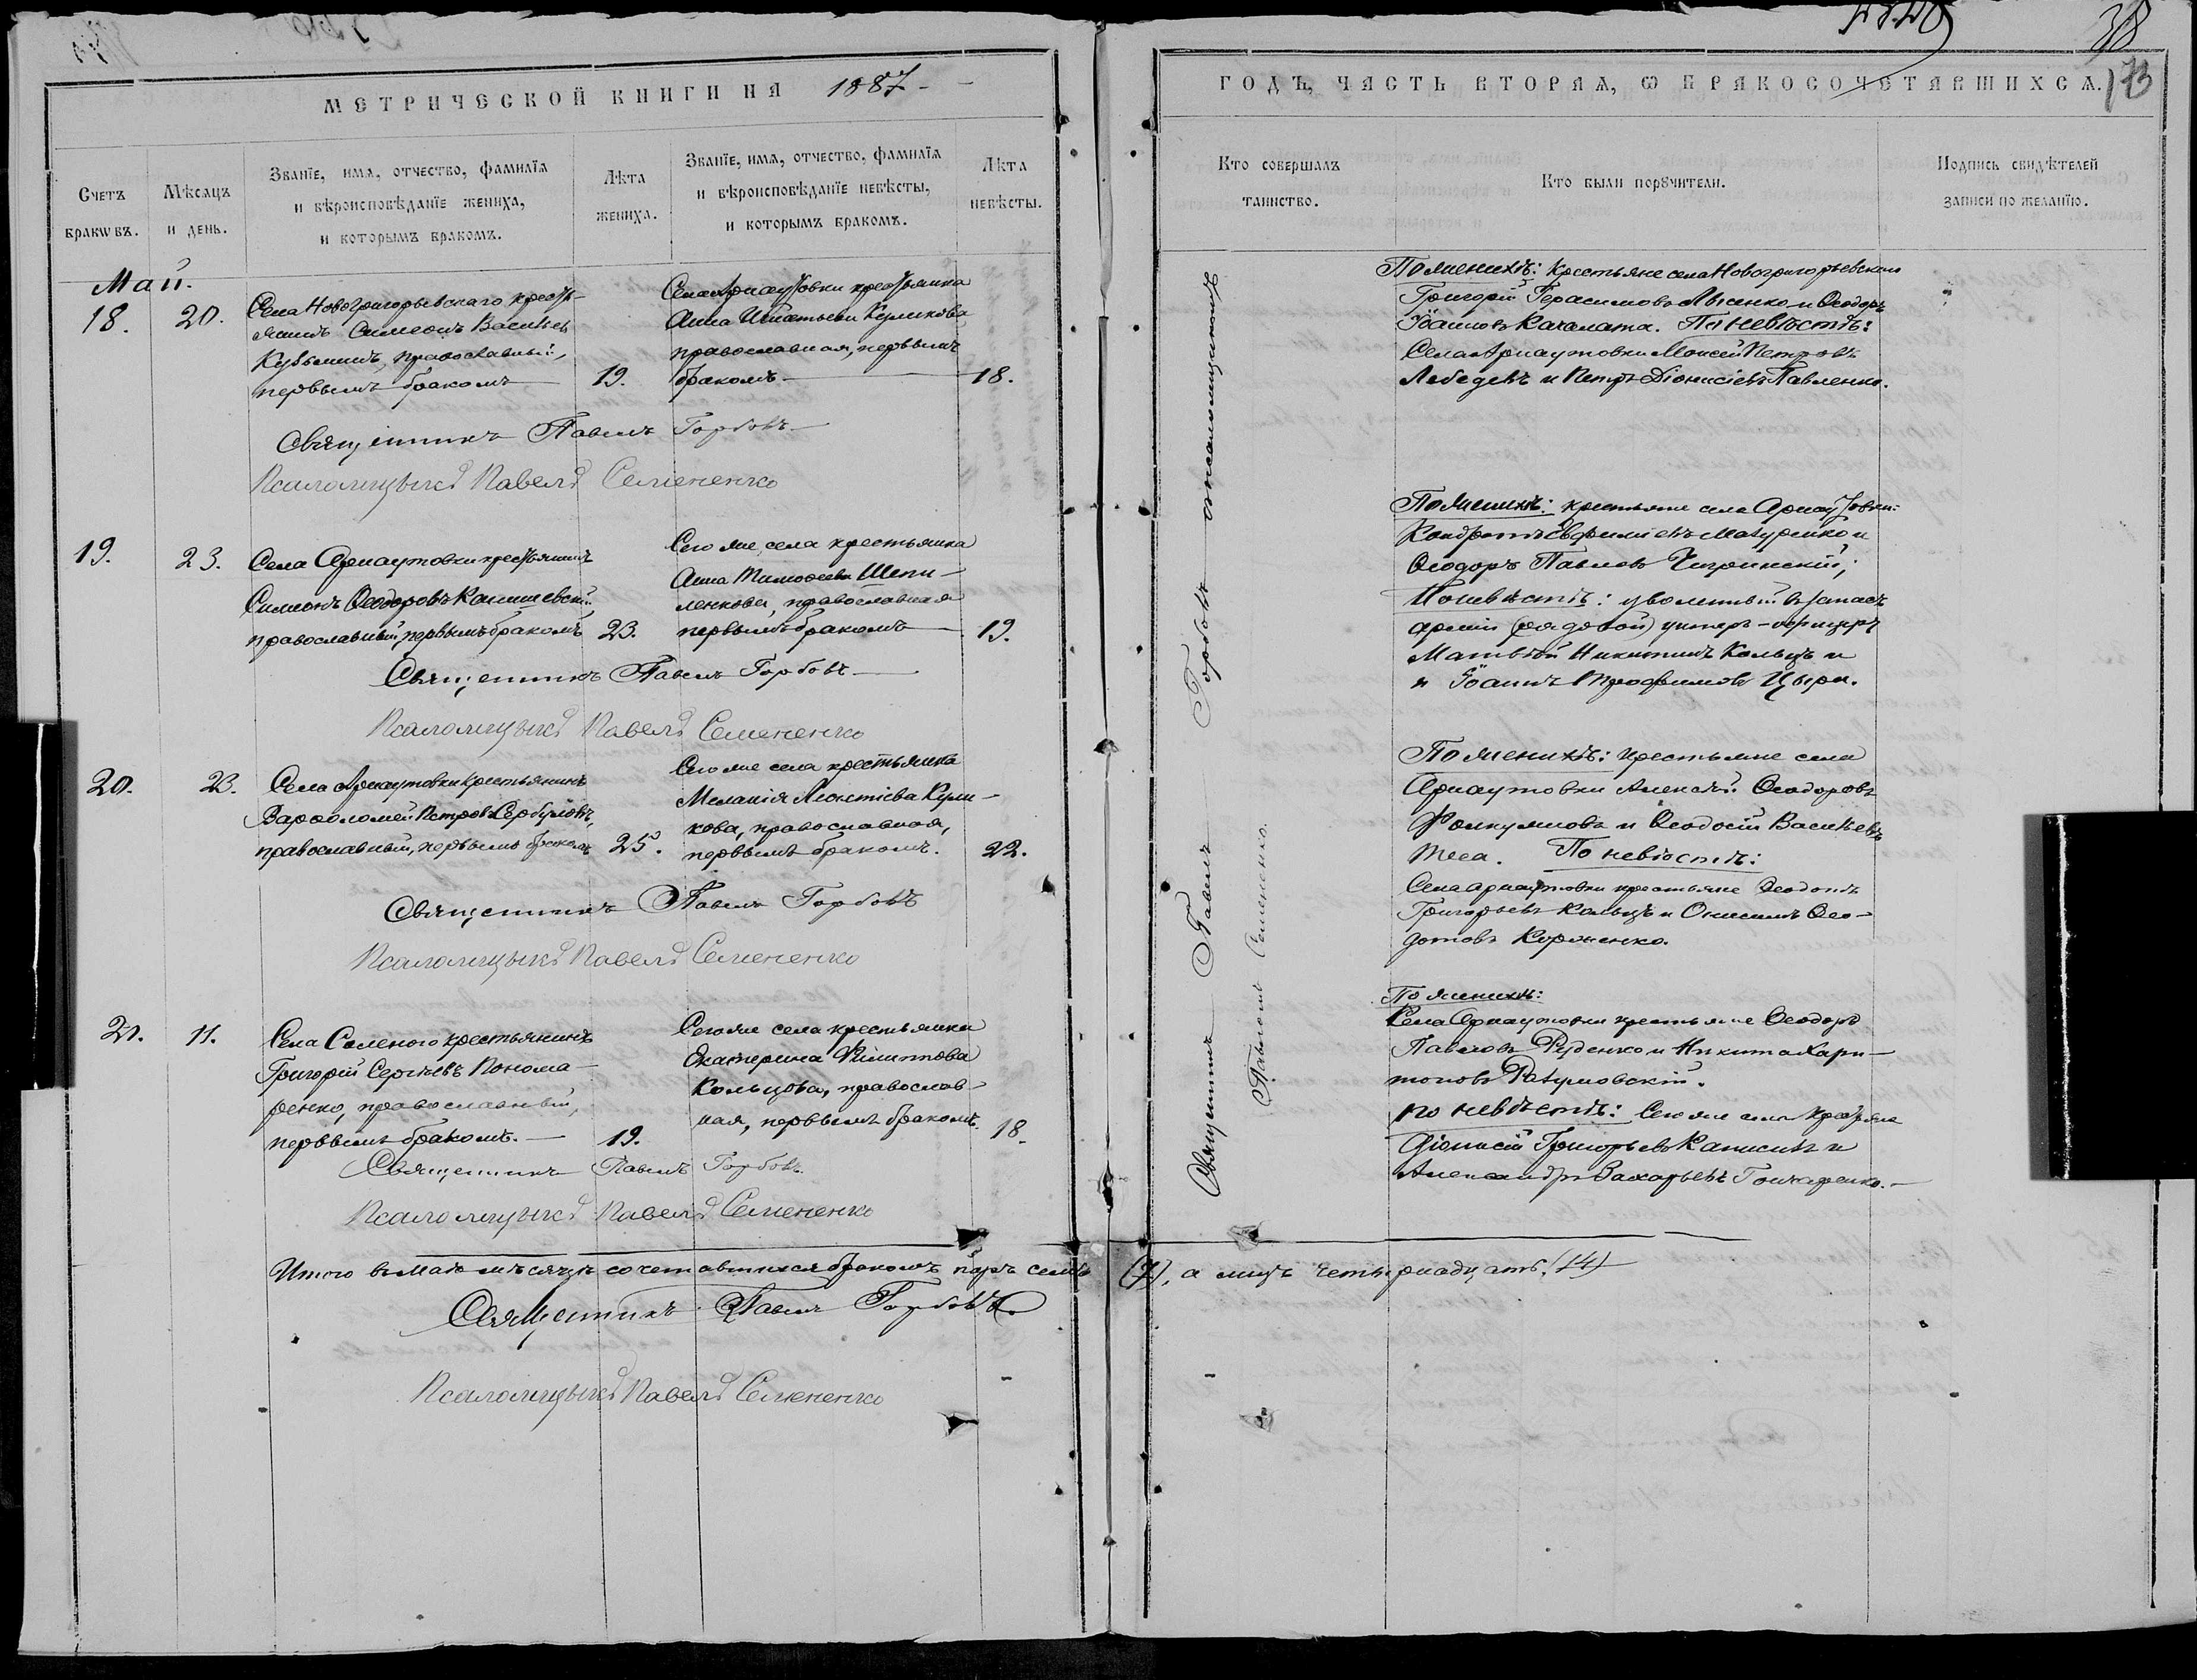 МЕТРИЧЕСКОЙ КНИГИ НА 1887
Счетъ браковъ.
Мѣсяцъ и день.
Званїе, имя, отчество, фамилїя
и вѣроисповѣданїе жениха,
и которымъ бракомъ.
Лѣта
жениха.
Званїе, имя, отчество, фамилїя
и вѣроисповѣданїе невѣсты,
и которымъ бракомъ.
Лѣта
невѣсты.
Май.
18. 20.
Села Новогригорьевскаго кресть-
янинъ Симеонъ Васильевъ
Кузьминъ, православный,
первымъ бракомъ 19.
Села Арнаутовки крестьянка
Анна Игнатьева Куликова,
православная, первымъ
бракомъ 18.
Священникъ Павелъ Горбовъ
Псаломщикъ Павелъ Семененко
19. 23.
Села Арнаутовки крестьянинъ
Симеонъ Ѳеодоровъ
православный, первымъ бракомъ 23.
Сего же села крестьянка
Анна Тимоѳеева Шепи-
ленкова, православная
первымъ бракомъ 19.
Священникъ Павелъ Горбовъ
Псаломщикъ Павелъ Семененко
20. 23.
Села Арнаутовки крестьянинъ
Варѳоломей Петровъ Сербуловъ,
православный, первымъ бракомъ 25.
Сего же села крестьянка
Меланія Леонтіева Кули-
кова, православная,
первымъ бракомъ. 22.
Священникъ Павелъ Горбовъ
Псаломщикъ Павелъ Семененко
21. 11.
Села Соленого крестьянинъ
Григорій Сергіевъ Понома-
ренко, православный,
первымъ бракомъ. 19.
Сего же села крестьянка
Екатерина Филиппова
Кольцова, православ-
ная, первымъ бракомъ. 18.
Священникъ Павелъ Горбовъ.
Псаломщикъ Павелъ Семененко
Итого въ маѣ мѣсяцѣ сочетавшихся бракомъ паръ семь (7), а лицъ четырнадцать. (14)
Священникъ Павелъ Горбовъ
Псаломщикъ Павелъ Семененко
38
173
ГОДЪ, ЧАСТЬ ВТОРАЯ, Ѡ БРАКОСОЧЕТАВШИХСЯ.
Кто совершалъ
таинство.
Кто были порꙋчители.
Подпись свидѣтелей
записи по желанїю.
Священникъ Павелъ Горбовъ съ псаломщикомъ
Павломъ Семененко.
По женихѣ: крестьяне села Новогригорьевскаго
Григорій Герасимовъ Лысенко и Ѳеодоръ
Іоанновъ Качалата. По невѣстѣ:
Села Арнаутовки Моисей Петровъ
Лебедевъ и Петръ Діонисіевъ Павленко.
По женихѣ: крестьяне села Арнаутовки:
Кондратъ Евфиміевъ Мазуренко и
Ѳеодоръ Павловъ Чигринскій;
По невѣстѣ: уволенный въ запасъ
арміи (рядовой) унтеръ-офицеръ
Матвѣй Никитинъ Кольцъ и
и Іоаннъ Трофимовъ Цыра.
По женихѣ: крестьяне села
Арнаутовки Алексѣй Ѳеодоровъ
и Ѳеодосій Васильевъ
Теса. По невѣстѣ:
Села Арнаутовки крестьяне Ѳеодотъ
Григорьевъ Кальцъ и Онисимъ Ѳео-
дотовъ Короненко.
По женихѣ:
Села Арнаутовки крестьяне Ѳеодоръ
Павловъ Руденко и Никита Хари-
тоновъ Разумовскій.
по невѣстѣ: Сего же села крестьяне
Діонисій Григорьевъ и
Александръ Захарьевъ Гончаренко.